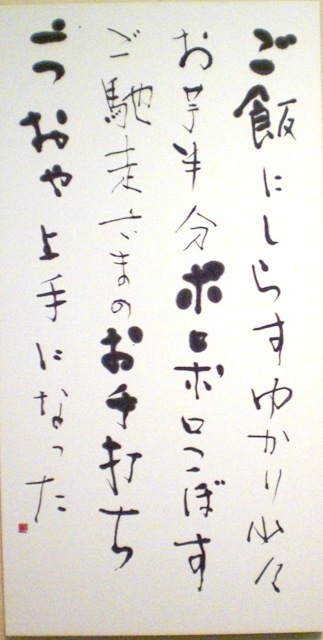 ご飯にしらすゆかり少々
お芋半分ポロポロこぼす
ご馳走さまのお手打ち
二つおや上手になった